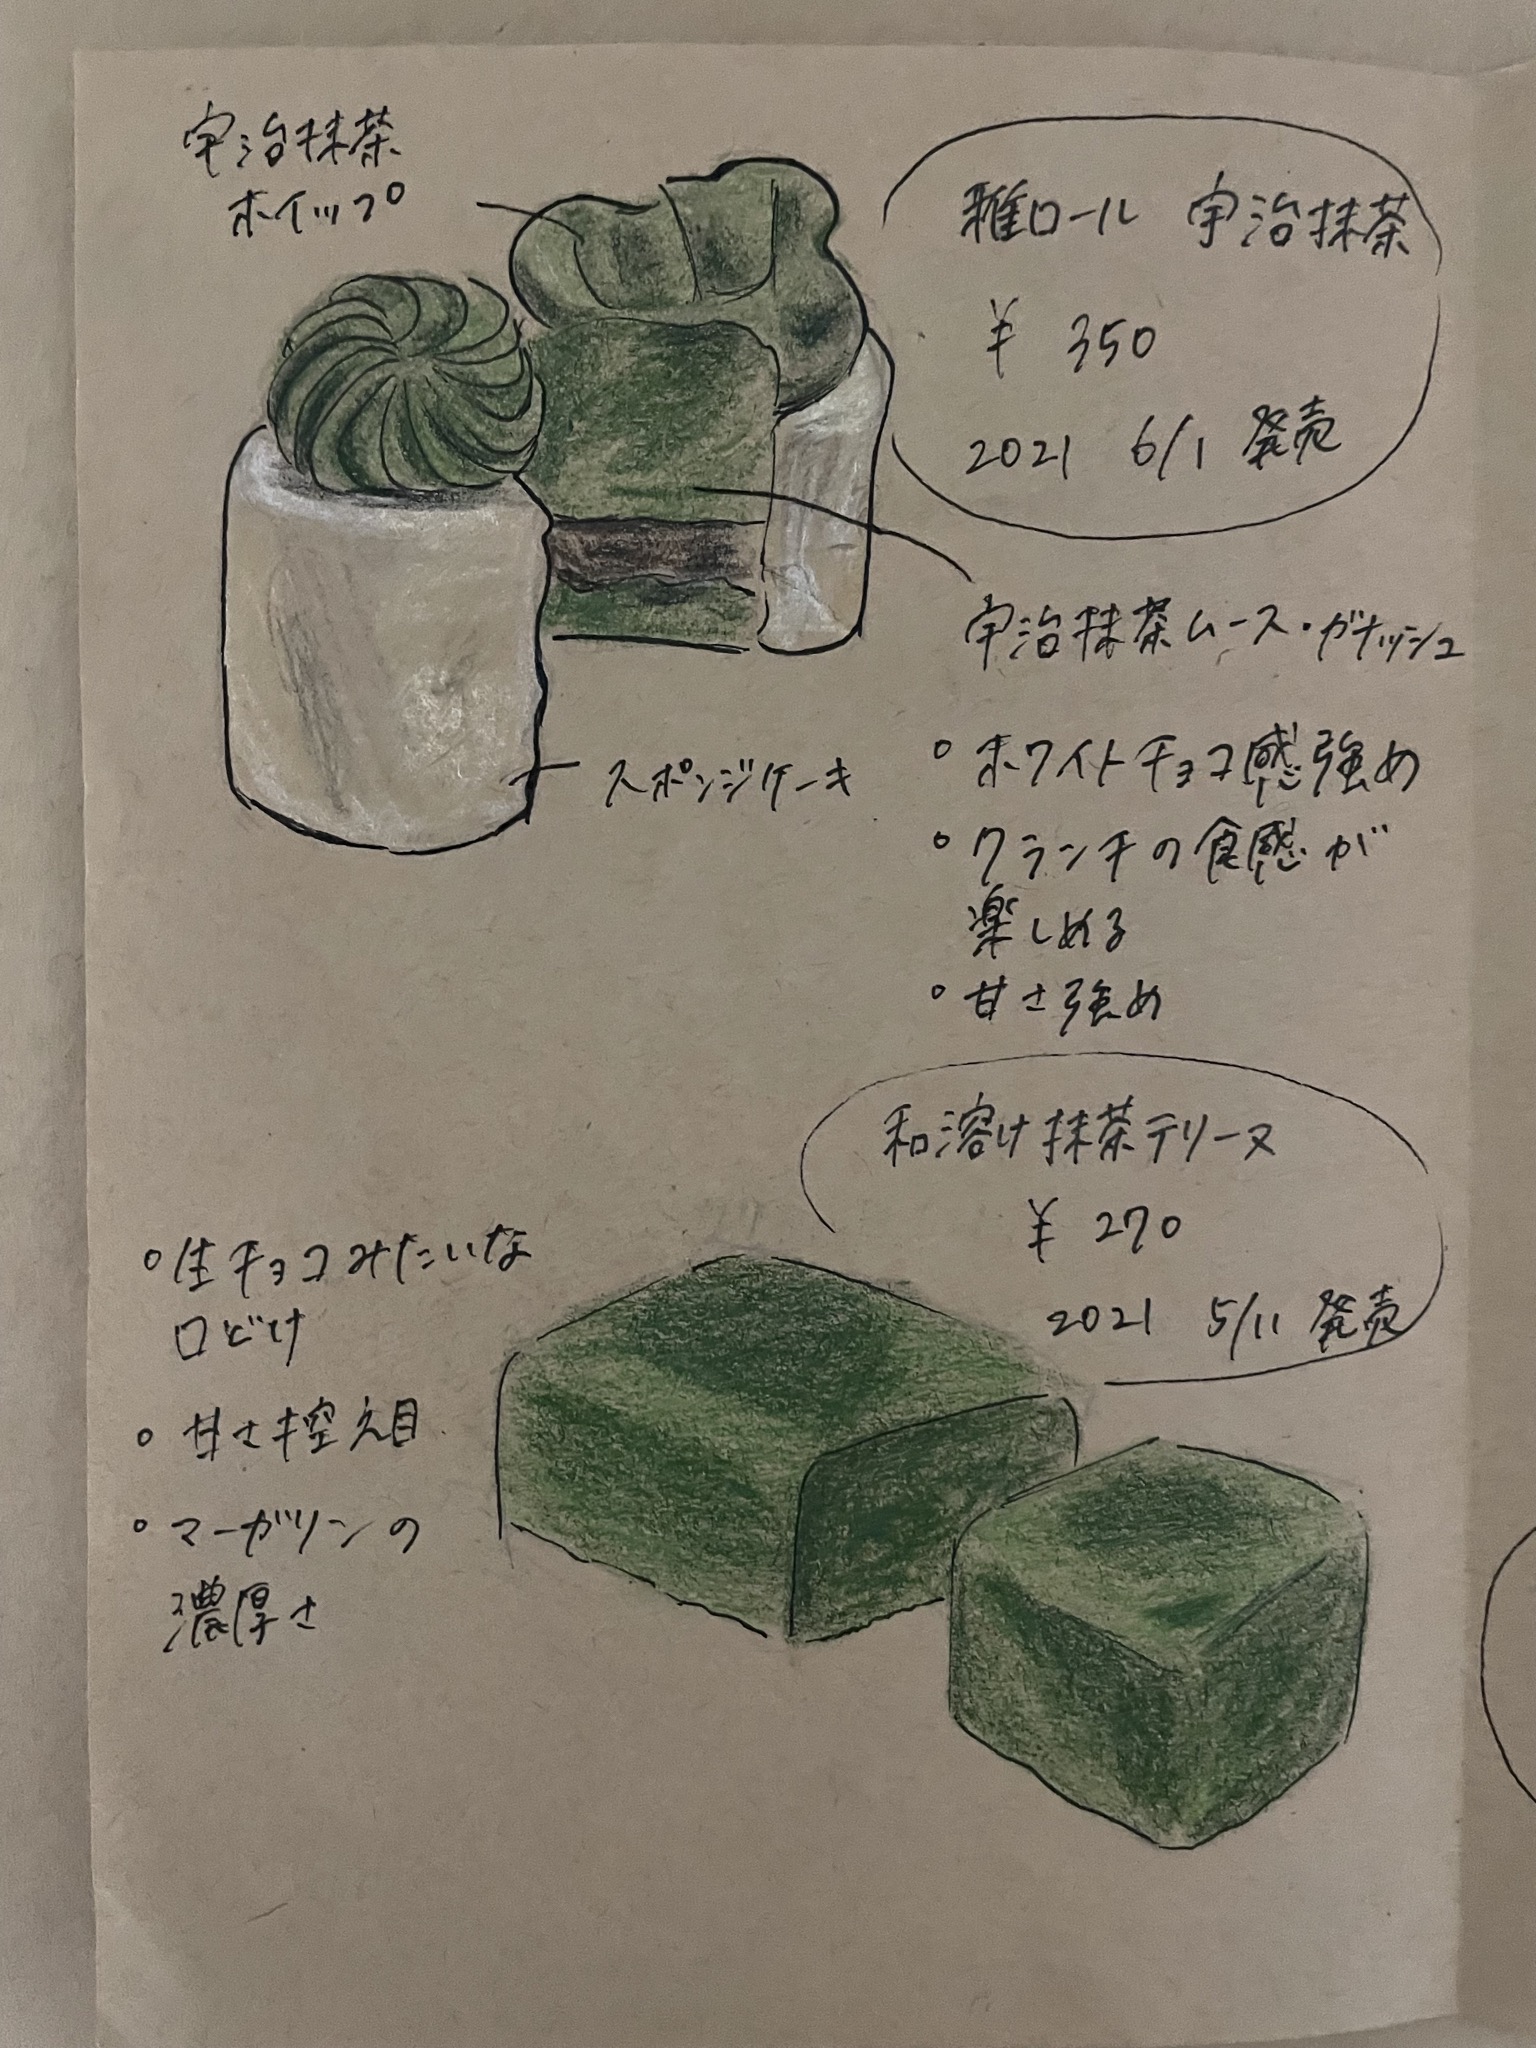 宇治抹茶
ホイップ
雅ロール 宇治抹茶
¥ 350
2021 6/1 発売
宇治抹茶ムース・ガナッシュ
スポンジケーキ
○ ホワイトチョコ感強め
○ クランチの食感が
楽しめる
○ 甘さ強め
和溶け抹茶テリーヌ
¥ 270
2021 5/11 発売
○ 生チョコみたいな
口どけ
○ 甘さ控え目
○ マーガリンの
濃厚さ